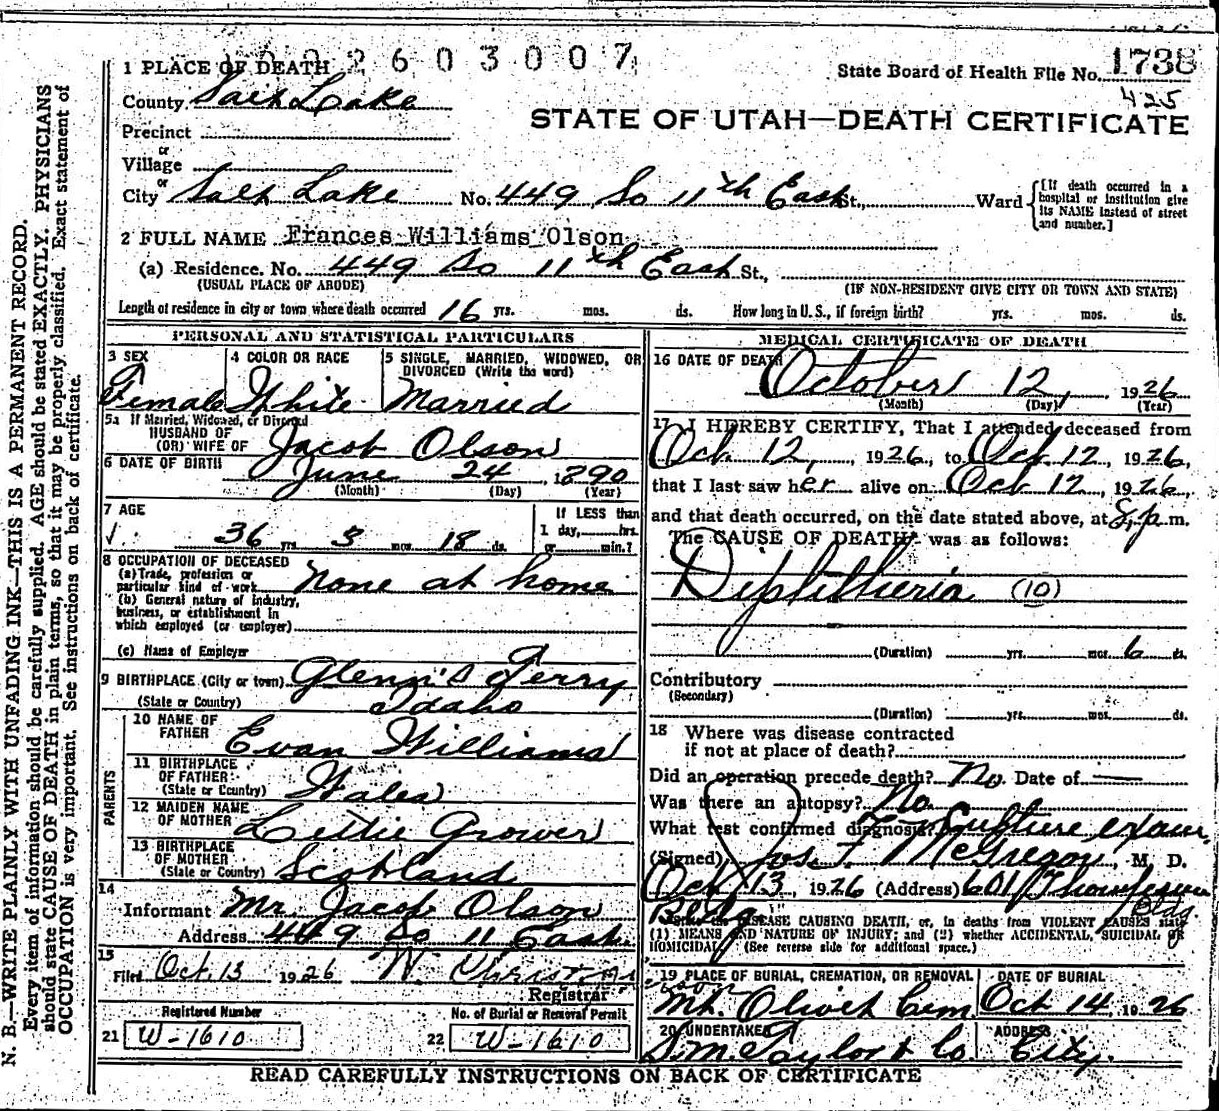 2603007
1 PLACE OF DEATH
State Board of Health File No. 1738
425
County Salt Lake
STATE OF UTAH—DEATH CERTIFICATE
Precinct
or
Village
or
City Salt Lake No. 449 So 11th East St., Ward [If death occurred in a hospital or institution give its NAME instead of street and number.]
2 FULL NAME Frances Williams Olson
(a) Residence. No. 449 So 11th East St.,
(USUAL PLACE OF ABODE) (IF NON-RESIDENT GIVE CITY OR TOWN AND STATE)
Length of residence in city or town where death occurred 16 yrs. mos. ds. How long in U. S., if foreign birth? yrs. mos. ds.
PERSONAL AND STATISTICAL PARTICULARS
3 SEX Female
4 COLOR OR RACE White
5 SINGLE, MARRIED, WIDOWED, OR DIVORCED (Write the word) Married
5a If Married, Widowed, or Divorced
HUSBAND OF
(OR) WIFE OF Jacob Olson
6 DATE OF BIRTH June 24, 1890
(Month) (Day) (Year)
7 AGE 36 yrs 3 mos 18 ds.
If LESS than
1 day, hrs.
or min.?
8 OCCUPATION OF DECEASED
(a) Trade, profession or
particular kind of work none at home
(b) General nature of industry,
business, or establishment in
which employed (or employer)
(c) Name of Employer
9 BIRTHPLACE (City or town) Glenn's Ferry
(State or Country) Idaho
PARENTS
10 NAME OF FATHER Evan Williams
11 BIRTHPLACE OF FATHER
(State or Country) Wales
12 MAIDEN NAME OF MOTHER Lettie Grower
13 BIRTHPLACE OF MOTHER
(State or Country) Scotland
14
Informant Mr Jacob Olson
Address 449 So 11 East
15
Filed Oct 13 1926 W.
Registrar
Registered Number No. of Burial or Removal Permit
21 W-1610 22 W-1610
MEDICAL CERTIFICATE OF DEATH
16 DATE OF DEATH October 12, 1926
(Month) (Day) (Year)
17 I HEREBY CERTIFY, That I attended deceased from
Oct. 12, 1926, to Oct. 12, 1926,
that I last saw her alive on Oct 12, 1926,
and that death occurred, on the date stated above, at 8, p.m.
The CAUSE OF DEATH was as follows:
Diphtheria (10)
(Duration) yrs. mos. 6 ds.
Contributory
(Secondary)
(Duration) yrs. mos. ds.
18 Where was disease contracted
if not at place of death?
Did an operation precede death? No Date of
Was there an autopsy? No
What test confirmed diagnosis? Culture exam
(Signed) Jos. F. McGregor, M. D.
Oct 13 1926 (Address) 601 Thompson
Bldg
DISEASE CAUSING DEATH, or, in deaths from VIOLENT CAUSES state
(1) MEANS AND NATURE OF INJURY; and (2) whether ACCIDENTAL, SUICIDAL or
HOMICIDAL. (See reverse side for additional space.)
19 PLACE OF BURIAL, CREMATION, OR REMOVAL DATE OF BURIAL
Mt. Olivet Cem. Oct 14 1926
20 UNDERTAKER ADDRESS
S.M. Taylor & Co City.
READ CAREFULLY INSTRUCTIONS ON BACK OF CERTIFICATE
N. B.—WRITE PLAINLY WITH UNFADING INK—THIS IS A PERMANENT RECORD.
Every item of information should be carefully supplied. AGE should be stated EXACTLY. PHYSICIANS
should state CAUSE OF DEATH in plain terms, so that it may be properly classified. Exact statement of
OCCUPATION is very important. See instructions on back of certificate.